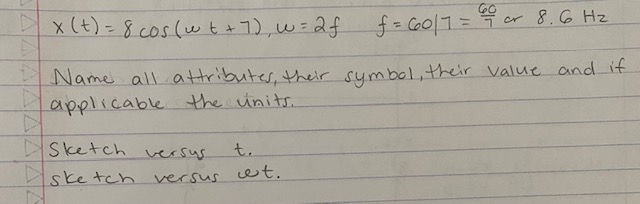 x(t) = 8 cos(ωt + 7), ω = 2f f = 60/7 = 60/7 or 8.6 Hz
Name all attributes, their symbol, their value and if
applicable the units.
Sketch versus t.
sketch versus ωt.